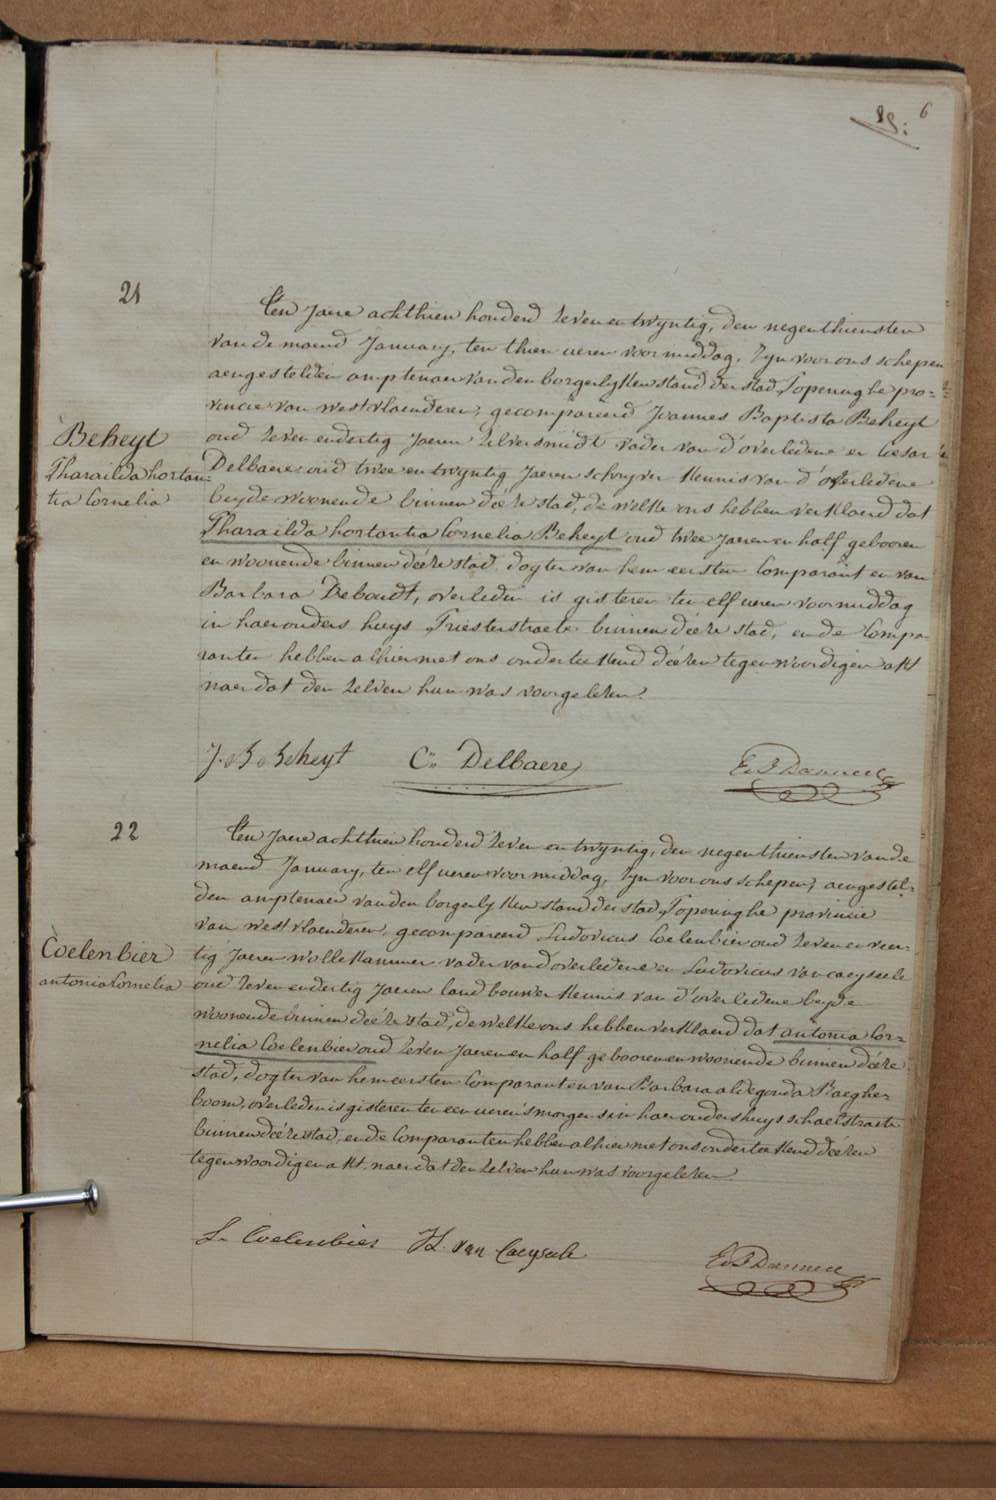 6
21
Ten Jaere achthien honderd zeven en twyntig, den negenthiensten
van de maend January, ten thien ueren voormiddag, Zyn voor ons schepen
aengestelden amptenaer van den borgerlyken stand der stad Poperinghe pro-
vincie van westvlaenderen, gecompareerd Joannes Baptista Beheyt
oud zeven endertig Jaeren zilversmidt vader van d'overledene en Cesar
Delbaere oud twee en twyntig Jaeren schryver kennis van d'overledene
beyde woonende binnen déeze stad, de welke ons hebben verklaerd dat
Tharailda hortantia Cornelia Beheyt oud twee Jaeren en half gebooren
en woonende binnen déeze stad, dogter van hem eersten Comparant en van
Barbara Deboudt, overleden is gisteren ten elf ueren voormiddag
in haer ouders huys Priesterstraete binnen déeze stad, en de Compa-
ranten hebben alhier met ons onderteekend déezen tegenwoordigen akt
naer dat den zelven hun was voorgelezen.
Beheyt
Tharailda hortan-
tia Cornelia
J. B. Beheyt
Cn Delbaere
22
Ten Jaere achthien honderd zeven en twyntig, den negenthiensten van de
maend January, ten elf ueren voormiddag, Zyn voor ons schepen, aengestel-
den amptenaer van den borgerlyken stand der stad Poperinghe provincie
van westvlaenderen, gecompareerd Ludovicus Coelenbier oud zeven en veer-
tig Jaeren wolle kammer vader van d'overledene en Ludovicus van caeyseele
oud zeven endertig Jaeren landbouwer kennis van d'overledene beyde
woonende binnen déeze stad, de welke ons hebben verklaerd dat antonia Cor-
nelia Coelenbier oud zeven Jaeren en half gebooren en woonende binnen déeze
stad, dogter van hem eersten Comparant en van Barbara aldegonda Baeghe-
boom, overleden is gisteren ten een ueren 's morgens in haer ouders huys schaelstraete
binnen déeze stad, en de Comparanten hebben alhier met ons onderteekend déezen
tegenwoordigen akt naer dat den zelven hun was voorgelezen
Coelenbier
antonia Cornelia
L. Coelenbier
van Caeyseele